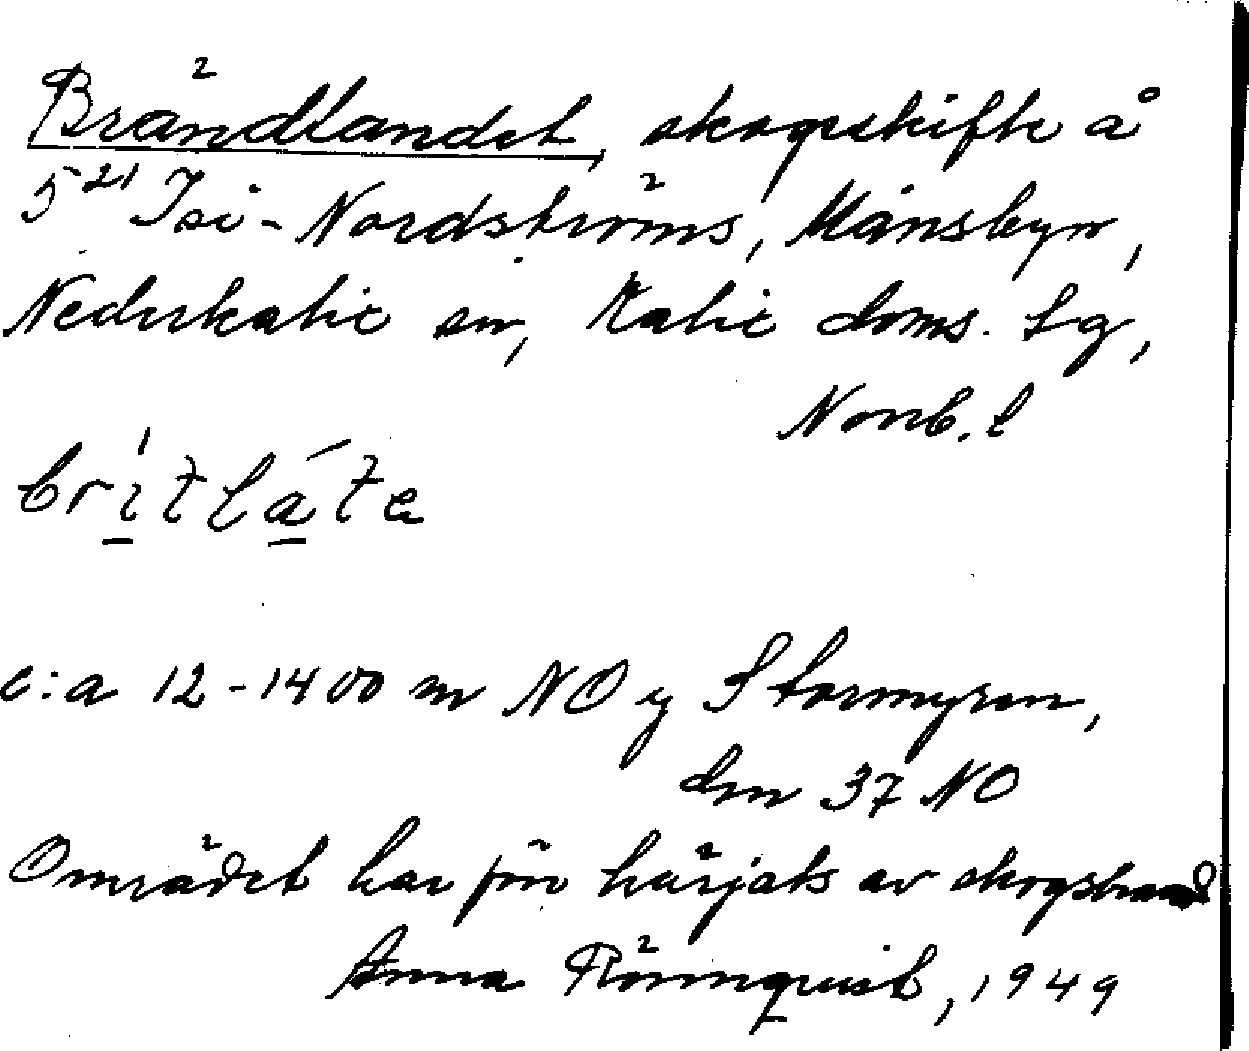 Brändlandet, skogsskifte å
5²¹ Isi-Nordströms, Månsbyn,
Nederkalix sn, Kalix doms. lg,
Norrb. l
britláte
c:a 12-1400 m NO y Stormyren,
den 37 NO
Området har förr härjats av skogsbrand
Anna Rönnquist, 1949